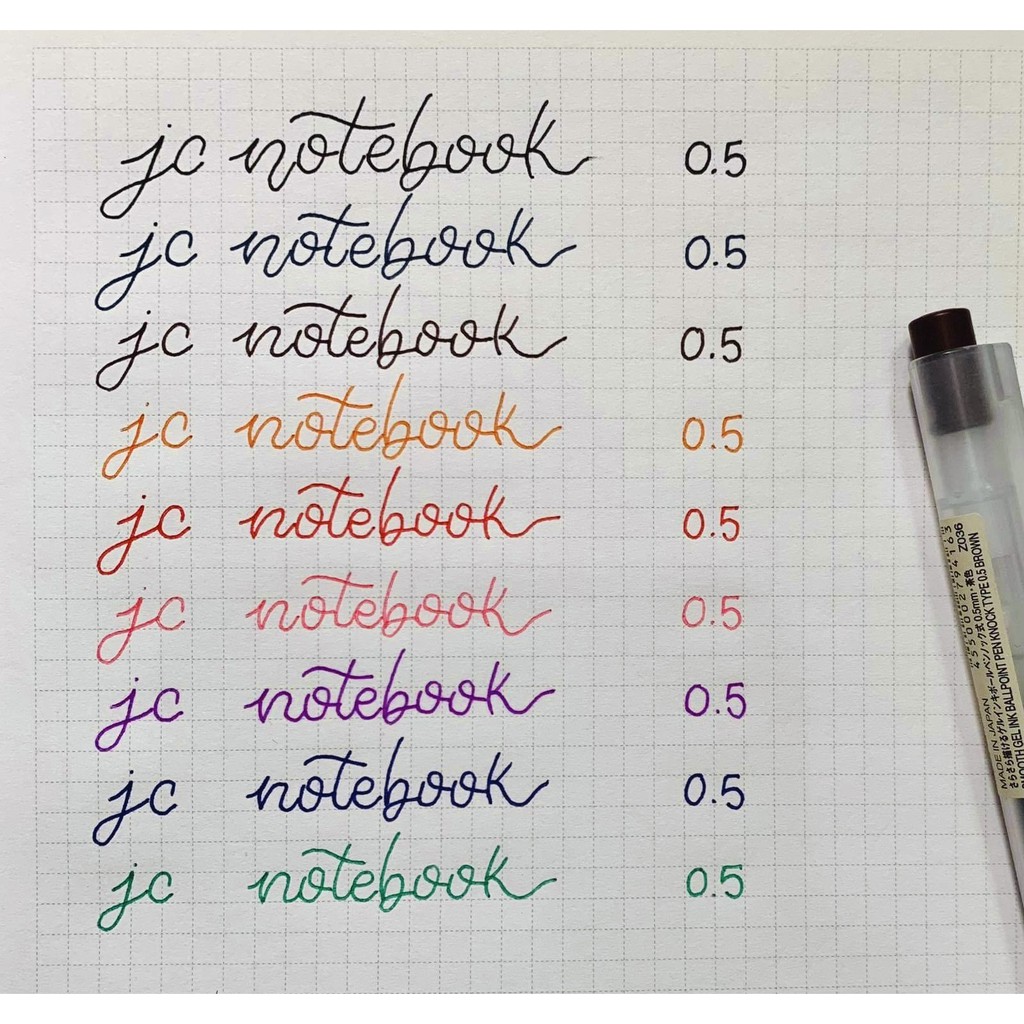 jc notebook 0.5
jc notebook 0.5
jc notebook 0.5
jc notebook 0.5
jc notebook 0.5
jc notebook 0.5
jc notebook 0.5
jc notebook 0.5
jc notebook 0.5
4550002794163
Z036
MADE IN JAPAN
さらさら描けるゲルインキボールペンノック式 0.5mm・茶色
SMOOTH GEL INK BALLPOINT PEN KNOCK TYPE 0.5 BROWN